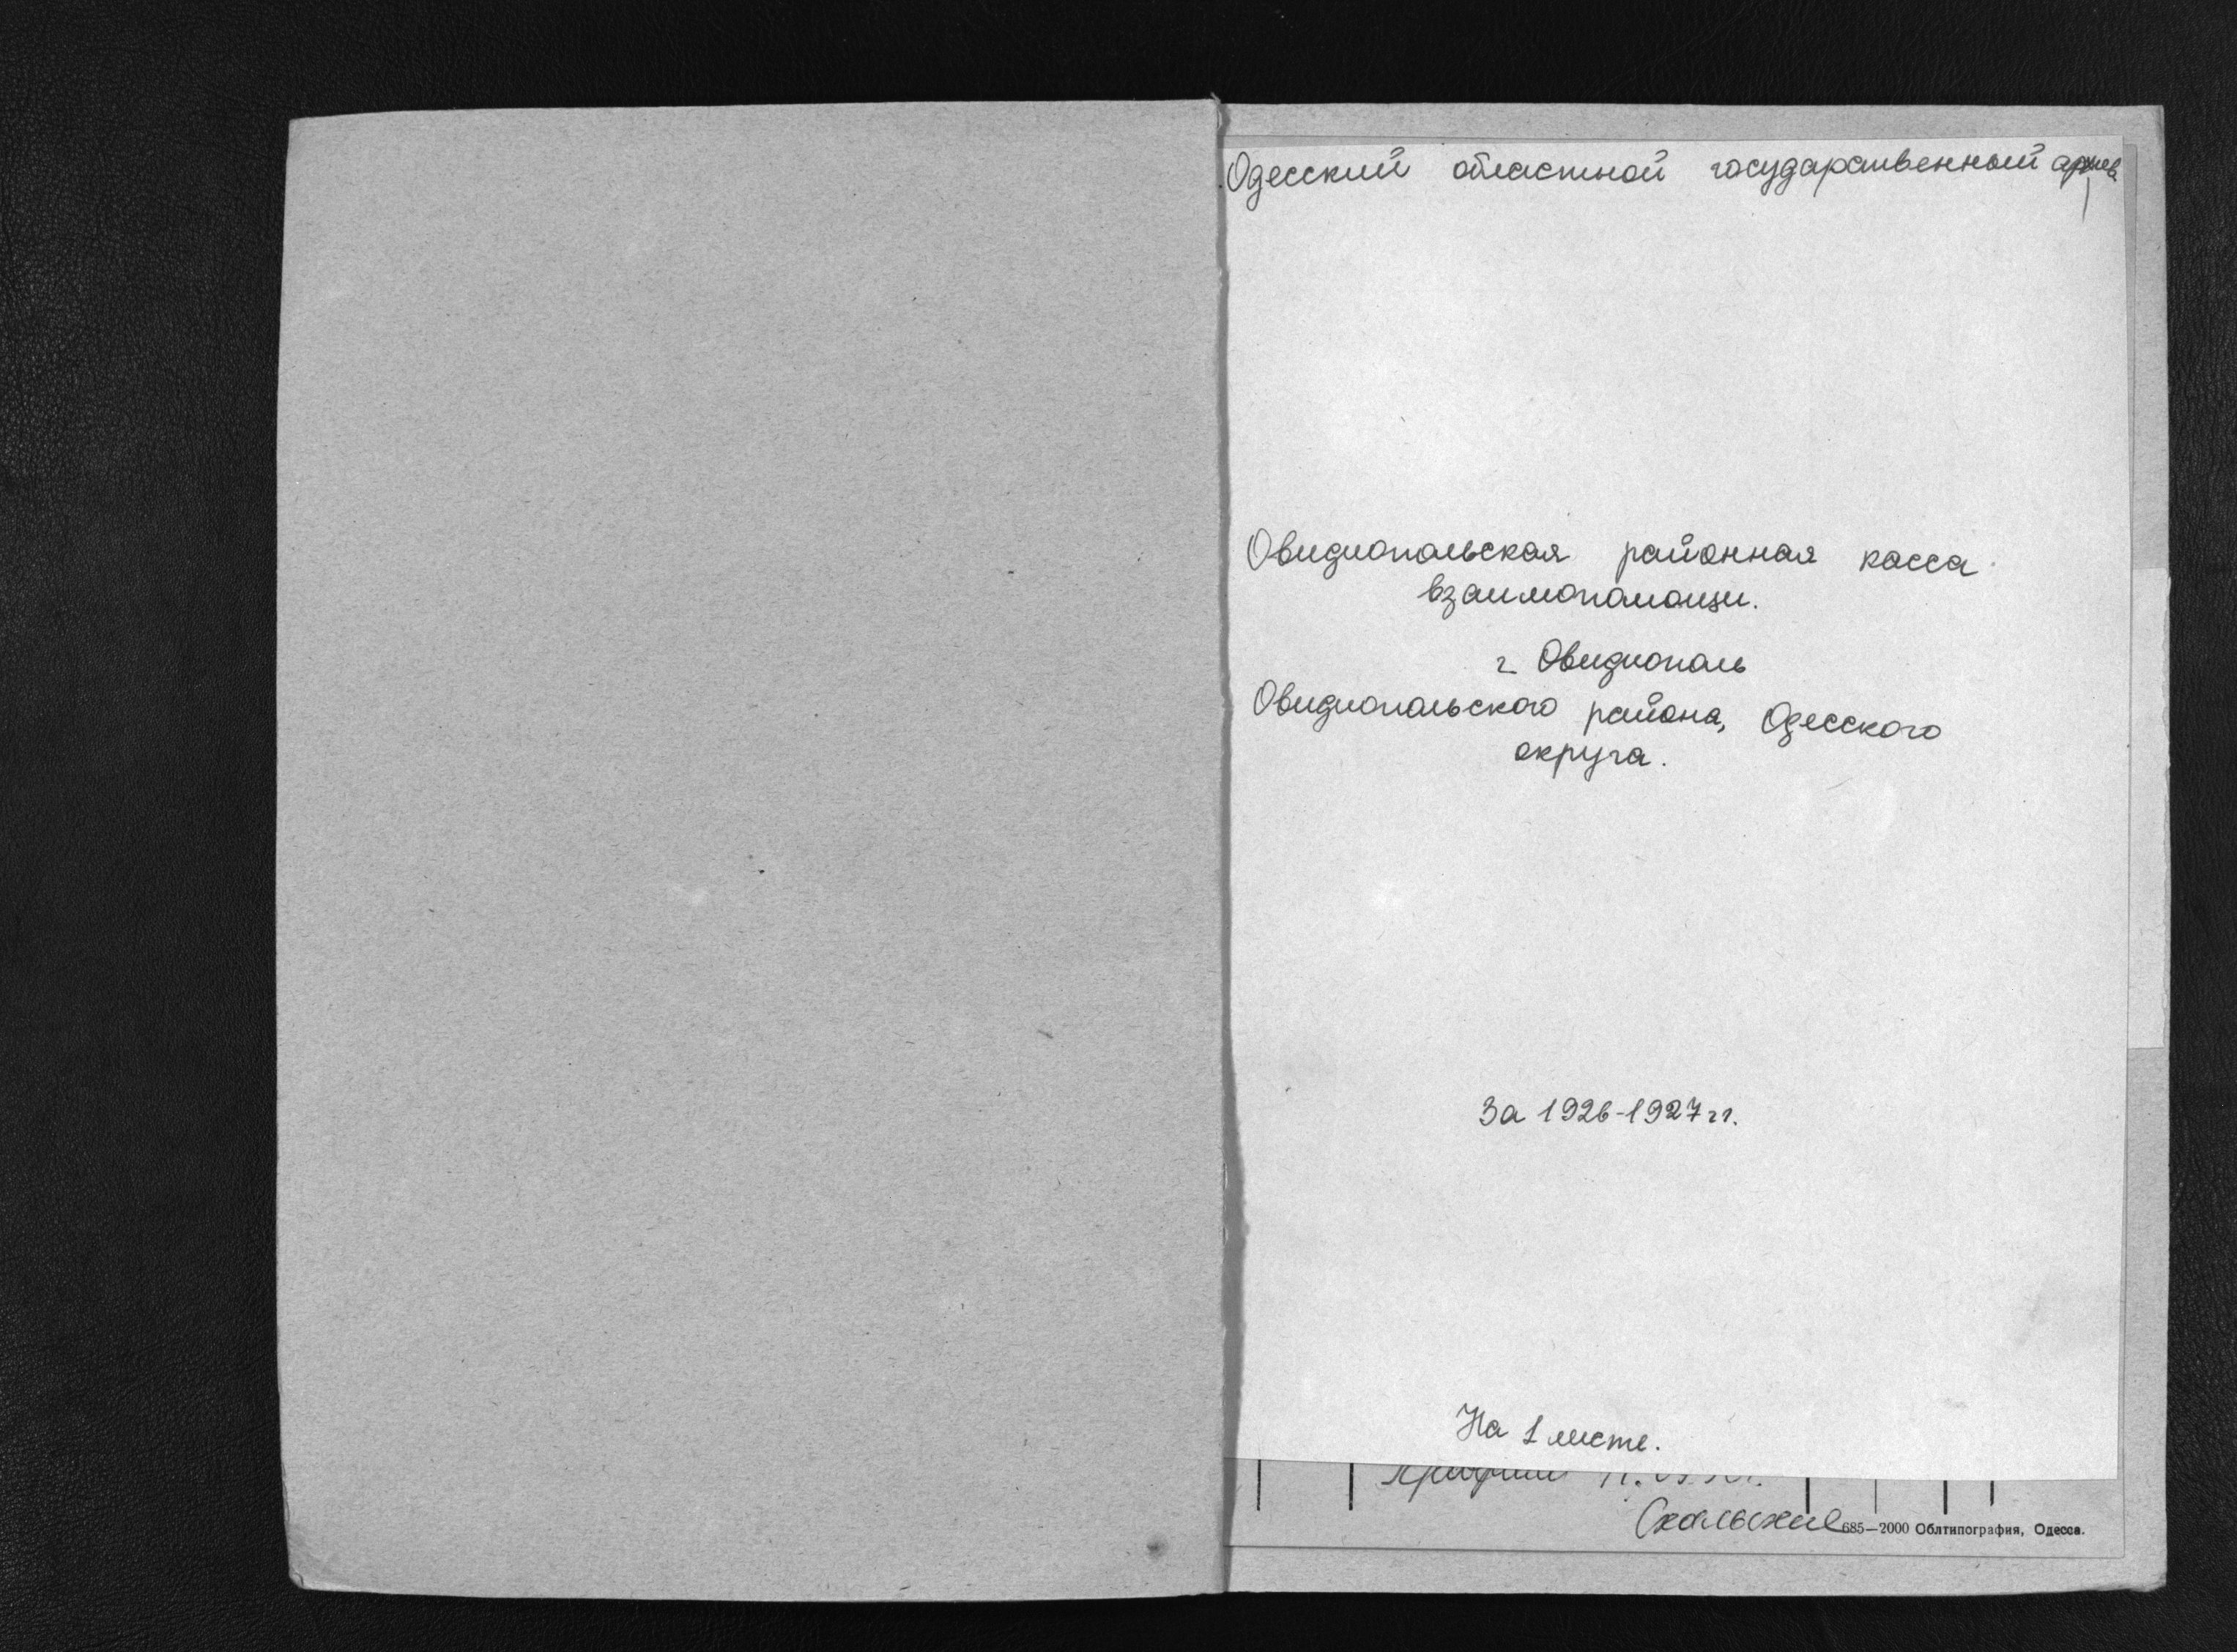 Одесский областной государственный архив
Овидиопольская районная касса
взаимопомощи.
г. Овидиополь
Овидиопольского района, Одесского
округа.
За 1926-1927 гг.
На 1 листе.
685—2000 Облтипография, Одесса.